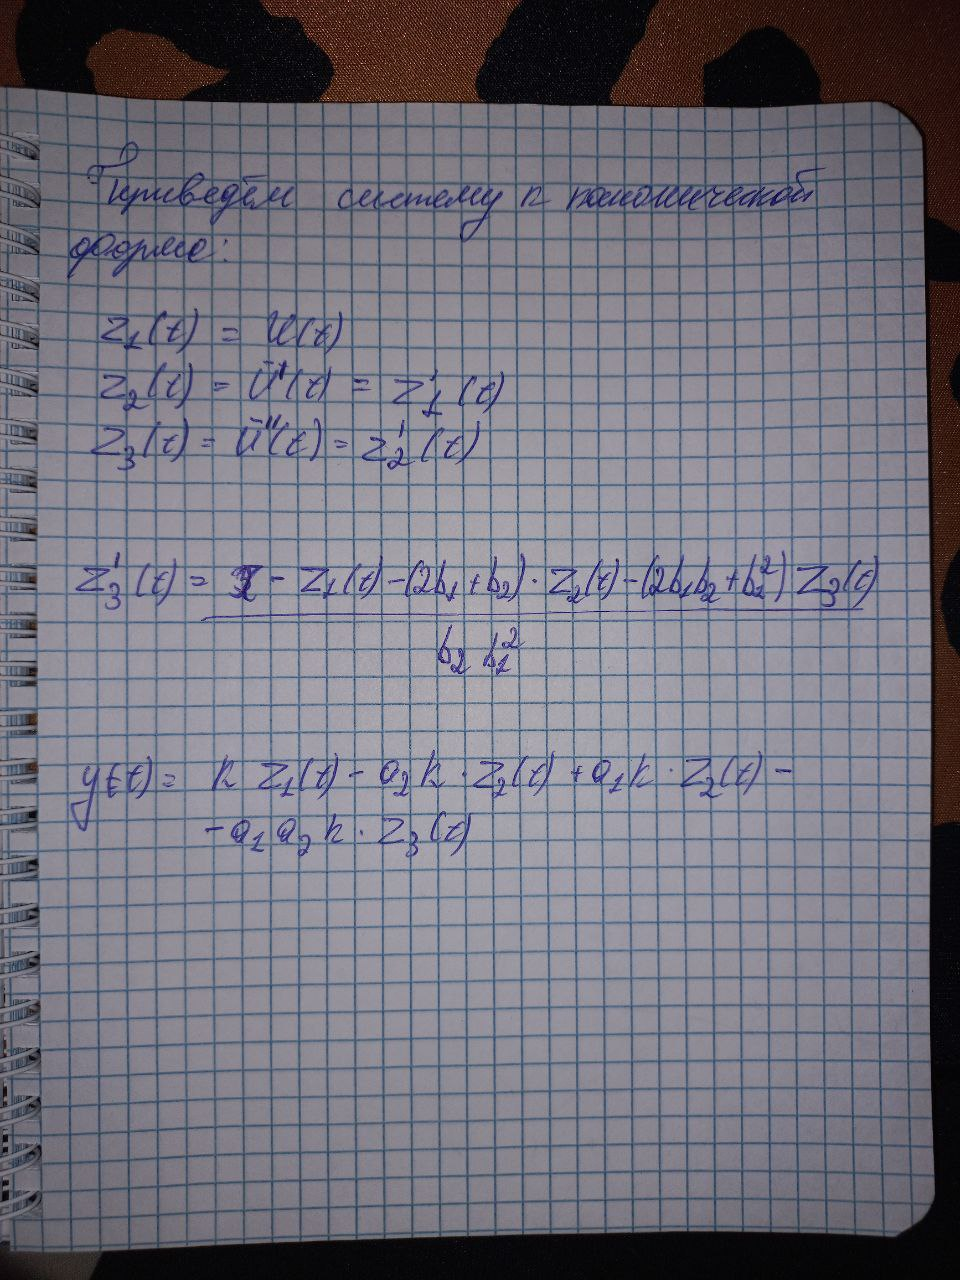 Приведём систему к канонической
форме:
z₁(t) = U(t)
z₂(t) = Ū'(t) = z₁'(t)
z₃(t) = Ū''(t) = z₂'(t)
z₃'(t) = x - z₁(t) - (2b₁ + b₂) · z₂(t) - (2b₁b₂ + b₁²) z₃(t)
b₂ b₁²
y(t) = k z₁(t) - a₂k · z₂(t) + a₁k · z₂(t) -
- a₁a₂k · z₃(t)